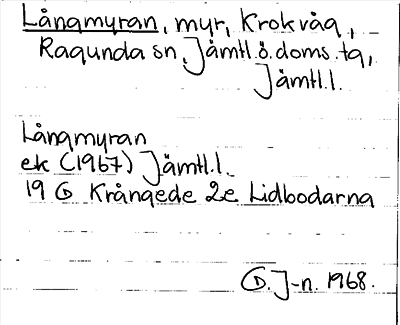 Långmyran, myr, Krokvåg,
Ragunda sn, Jämtl.ö.doms.tg,
Jämtl.l.
Långmyran
ek (1967) Jämtl.l.
19 G Krångede 2e Lidbodarna
G. J-n. 1968.